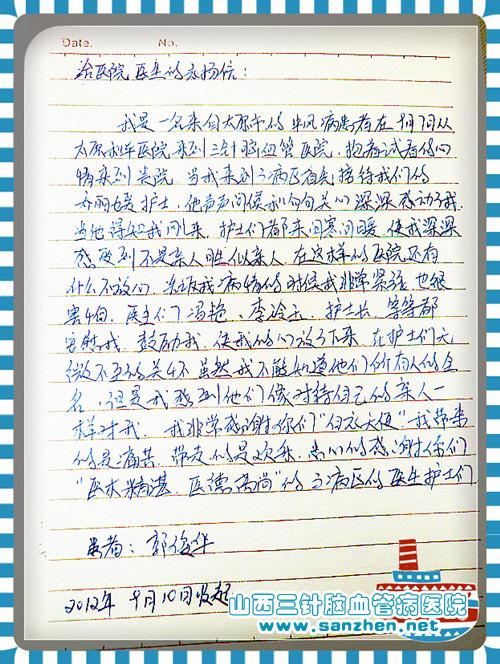 Date. No.
给医院医生的表扬信：
我是一名来自太原市的中风病患者在9月7日从
太原利军医院来到三针脑血管医院，抱着试看的心
情来到贵院，当我来到三病区首先接待我们的
乔丽媛护士，他声声问候和句句关心深深感动了我，
当他得知我冈上来，护士们都来问寒问暖，使我深深
感受到不是亲人胜似亲人，在这样的医院还有
什么不放心，发现我病情的时候我非常紧张，也很
害怕，医生们冯艳、李冷玉，护士长，等等都
安慰我，鼓励我，使我的心放了下来，在护士们无
微不至的关怀虽然我不能知道他们所有人的全
名，但是我感到他们像对待自己的亲人一
样对我，我非常感谢你们"白衣天使"我带来
的是痛苦，带走的是欢乐，衷心的感谢你们
"医术精湛，医德高尚"的三病区的医生护士们
患者：郭俊华
2012年9月10日
山西三针脑血管病医院
www.sanzhen.net